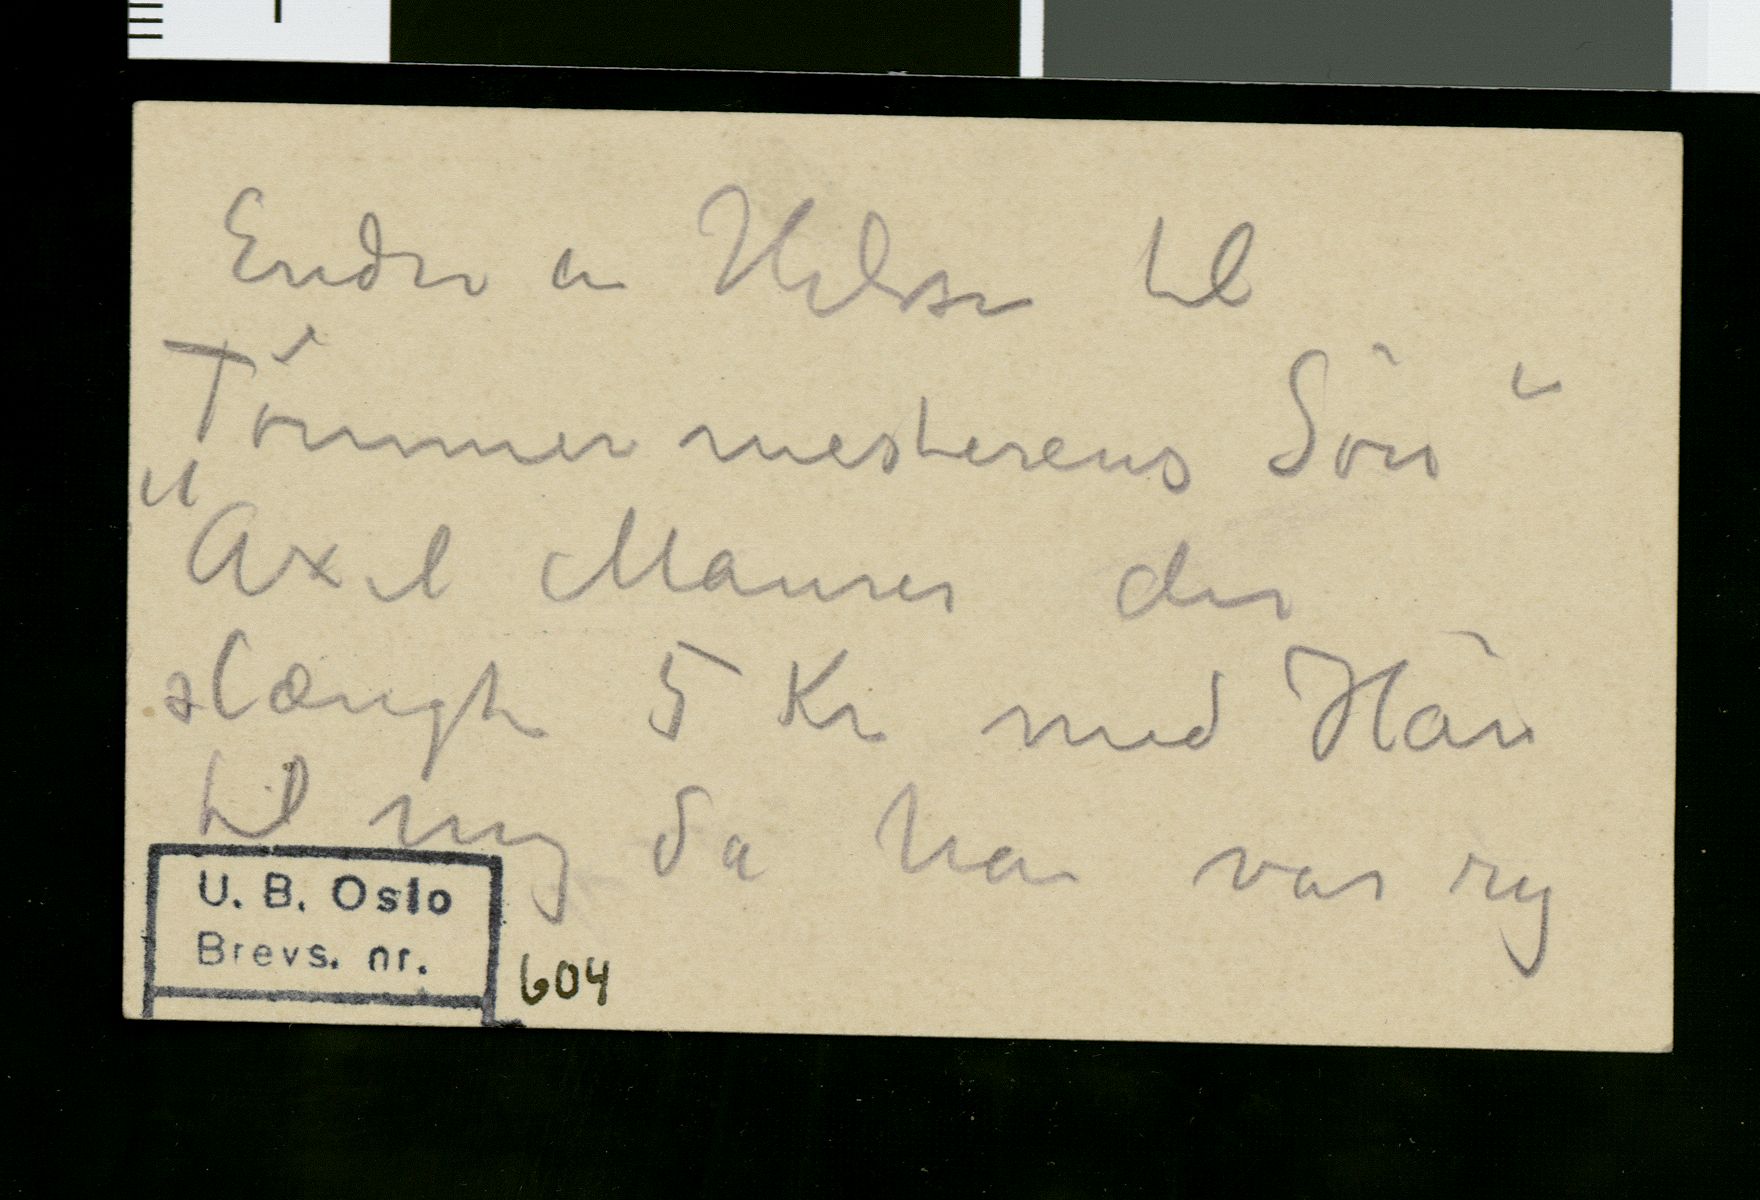 Endnu en Hilsen til
Tömmermesterens Sön"
"Axel Maurer der
slængte 5 Kr med Hån
til mig da han var rig
U. B. Oslo
Brevs. nr.
604